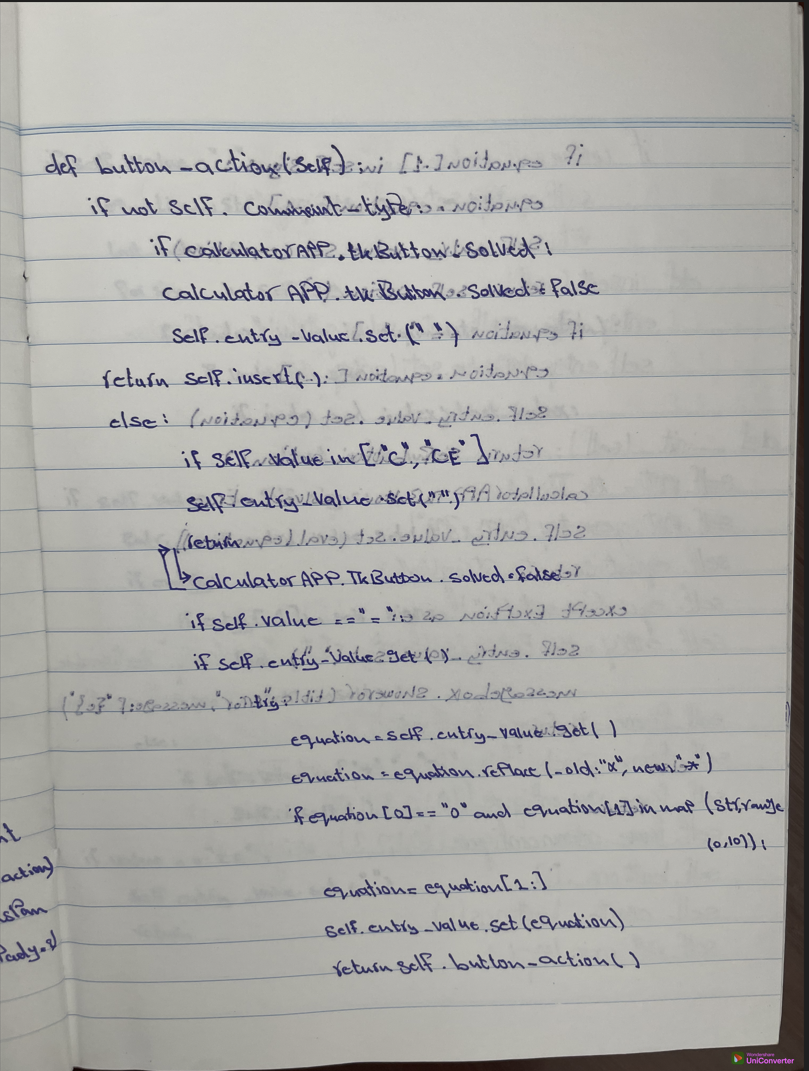 def button-action(self):
if not self. constraint-type:
if calculatorAPP.tkButton.Solved:
Calculator APP.tkButton.Solved=false
Self.entry-value.set.(" ")
return self.insert( )
else:
if self.value in ["C", "CE"]
Self.entry-value.set("")
return
CalculatorAPP.TkButton.solved=false
if self.value == "="
if self.entry-value.get( )
try:
equation = self.entry-value.get( )
equation = equation.replace(-old:"x", new:"*")
if equation [0]== "0" and equation[1] in map (str,range
(0,10)):
equation= equation[1:]
Self.entry-value.set(equation)
return self.button-action( )
nt
action)
sPan
Pady=2)
Wondershare
UniConverter